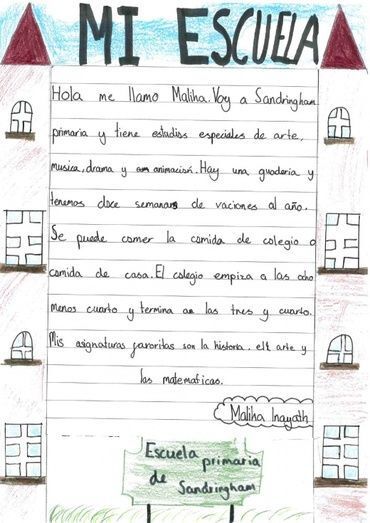 MI ESCUELA
Hola me llamo Maliha. Voy a Sandringham
primaria y tiene estudios especiales de arte,
musica, drama y animacion. Hay una guaderia y
tenemos doce semanas de vaciones al año.
Se puede comer la comida de colegio o
comida de casa. El colegio empiza a las ocho
menos cuarto y termina a las tres y cuarto.
Mis asignaturas favoritas son la historia, elt arte y
las matematicas.
Maliha Inayath
Escuela
primaria
de
Sandringham